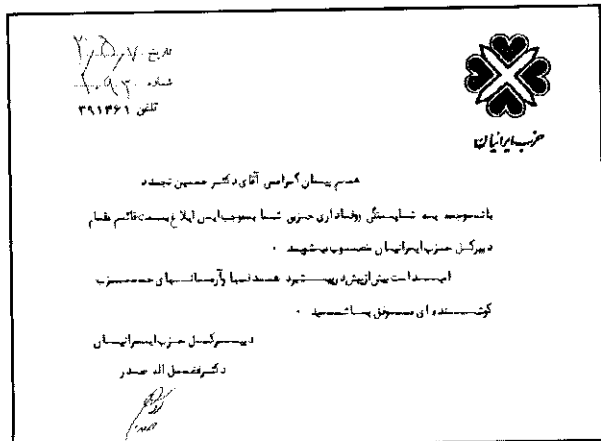 تاریخ ۲۰،۵،۷
شماره ۱۰۹۳۰
تلفن ۳۹۱۴۶۱
حزب ایرانیان
همسر پیمان گرامی آقای دکتر حسین تجدد
باتوجه به شایستگی ووفاداری حزبی شما بموجب این ابلاغ بسمت قائم مقام
دبیرکل حزب ایرانیان منصوب میشوید .
امید است بیش از پیش در پیشبرد هدفها وآرمانهای حزب
کوشنده ای موفق باشید .
دبیرکل حزب ایرانیان
دکتر فضل اله صدر